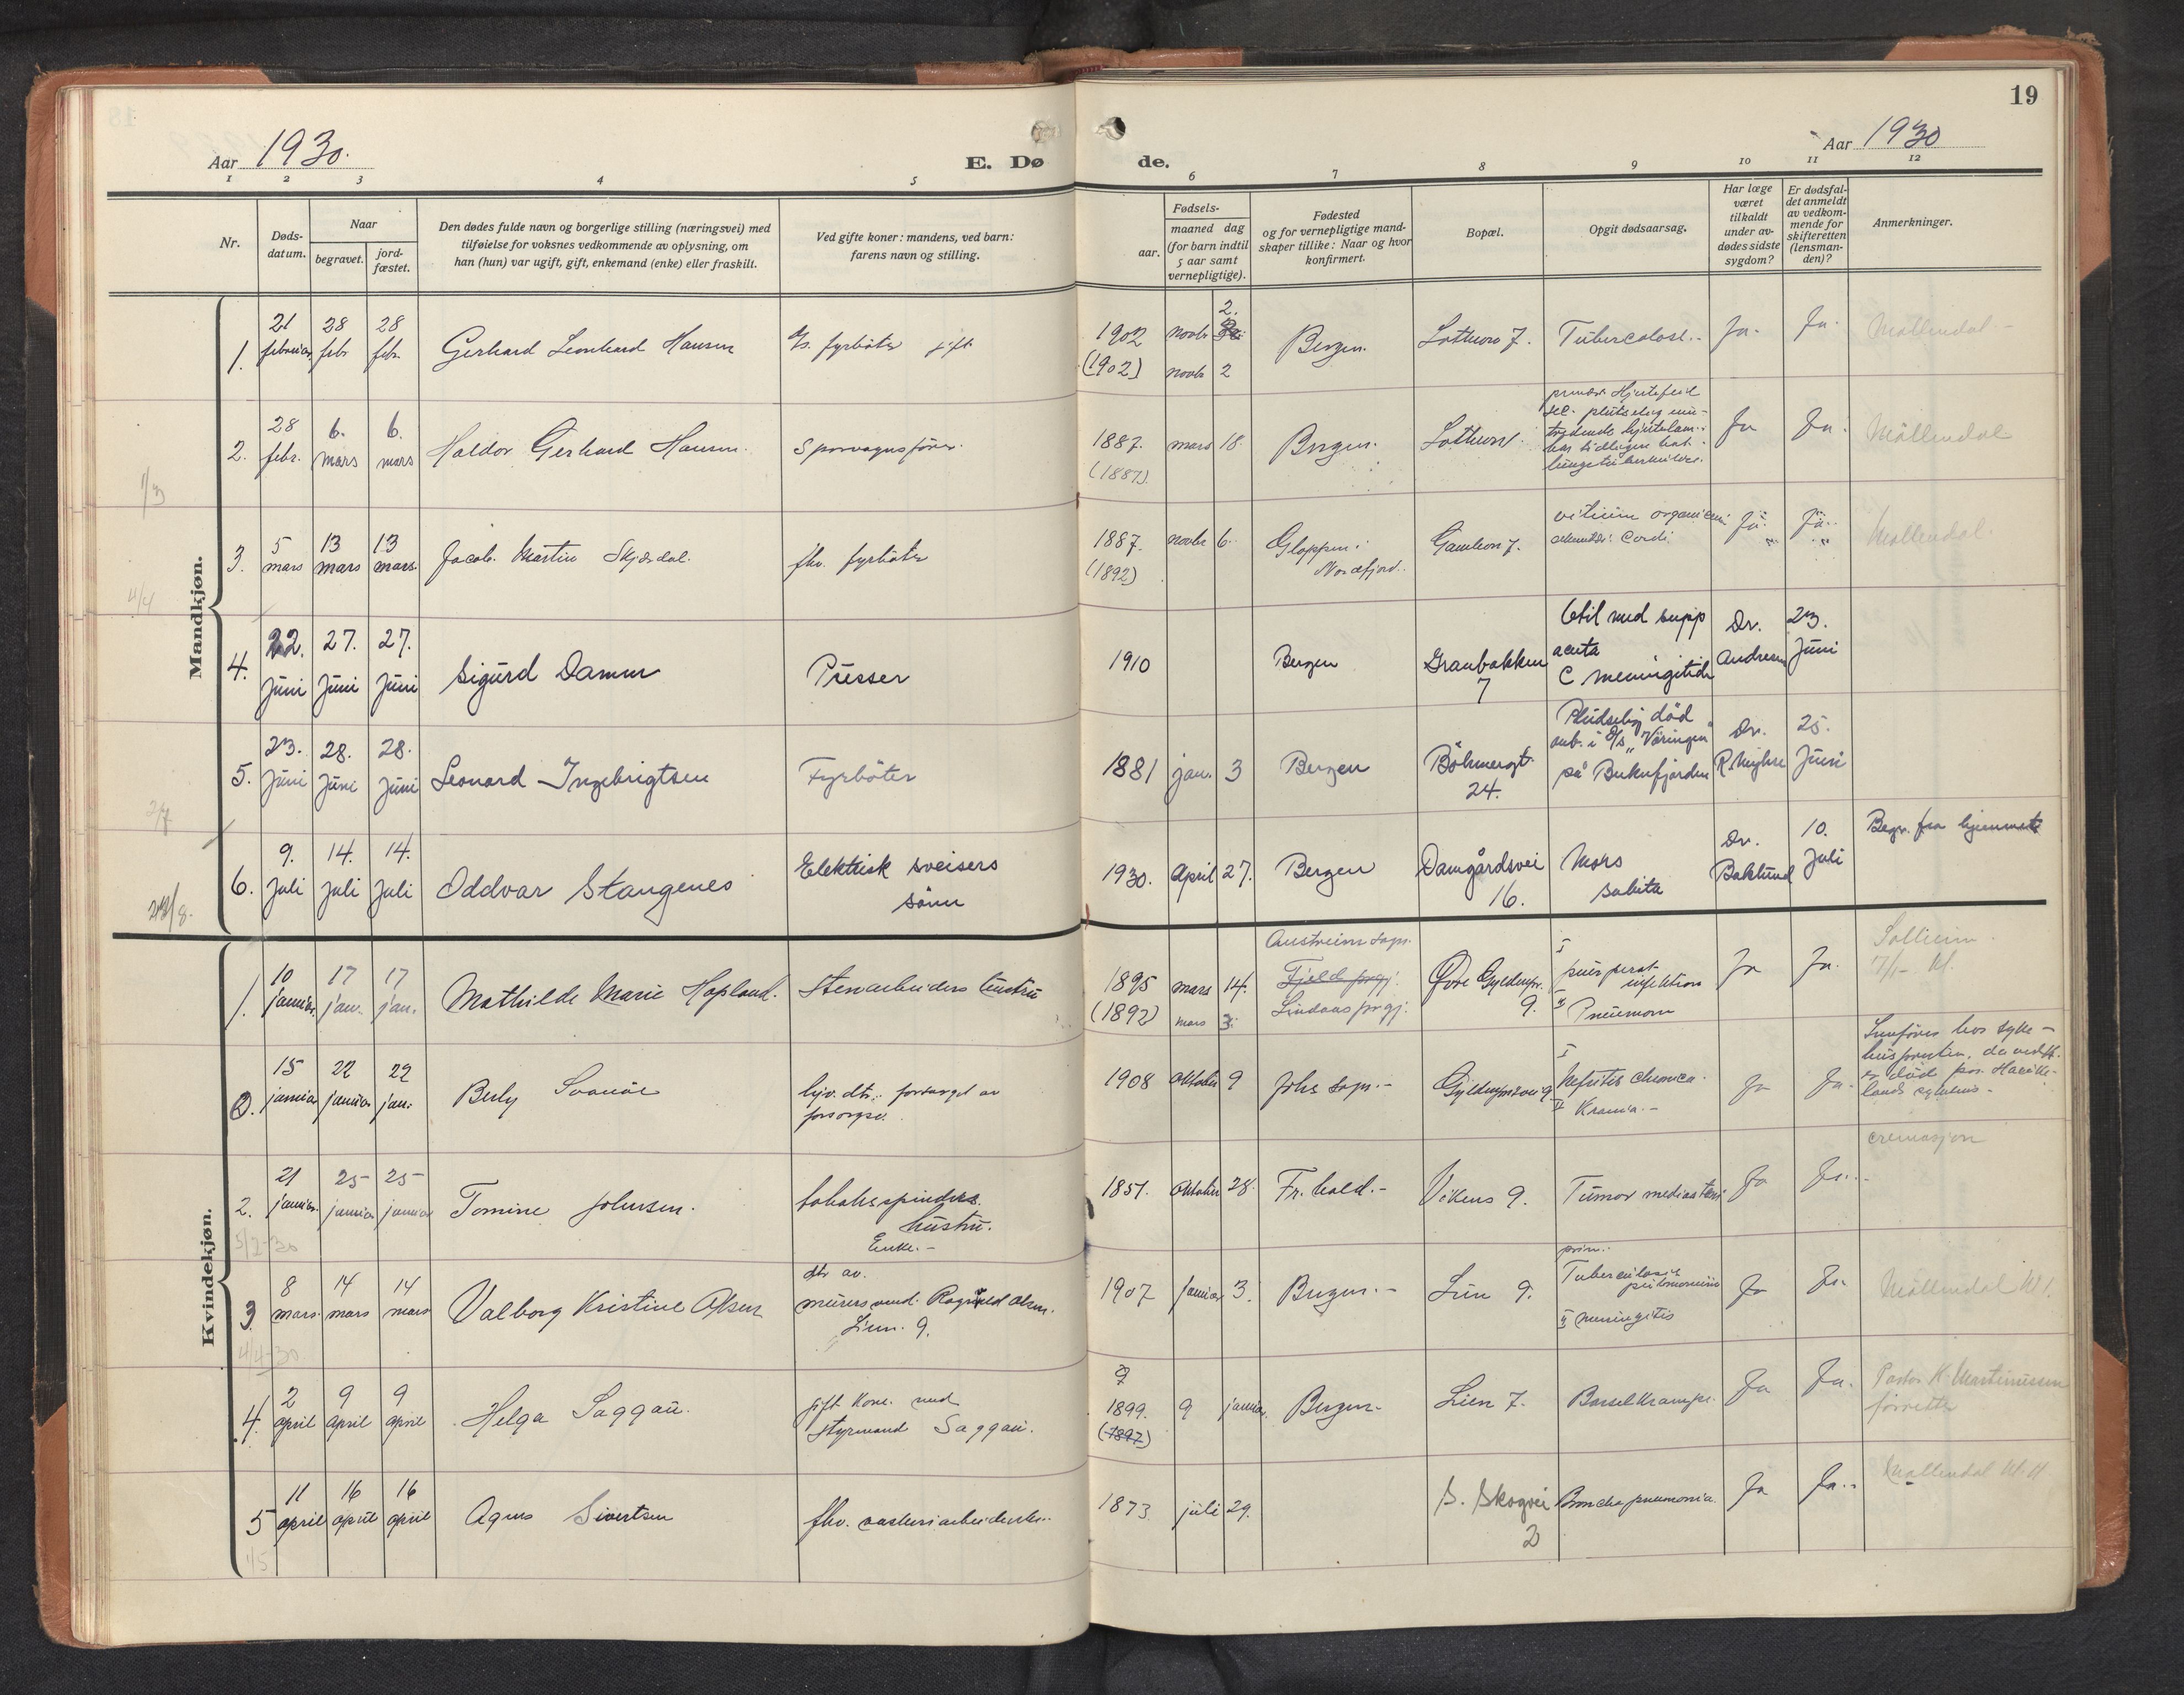 19
Aar 1930.
E. Dø de.
Aar 1930
1 2 3 4 5 6 7 8 9 10 11 12
Nr.
Døds-
datum.
Naar
begravet.
jord-
fæstet.
Den dødes fulde navn og borgerlige stilling (næringsvei) med
tilføielse for voksnes vedkommende av oplysning, om
han (hun) var ugift, gift, enkemand (enke) eller fraskilt.
Ved gifte koner: mandens, ved barn:
farens navn og stilling.
Fødsels-
aar.
maaned dag
(for barn indtil
5 aar samt
vernepligtige).
Fødested
og for vernepligtige mand-
skaper tillike: Naar og hvor
konfirmert.
Bopæl.
Opgit dødsaarsag.
Har læge
været
tilkaldt
under av-
dødes sidste
sygdom?
Er dødsfal-
det anmeldt
av vedkom-
mende for
skifteretten
(lensman-
den)?
Anmerkninger.
Mandkjøn.
1. 21 februar 28 febr. 28 febr. Gerhard Leonhard Hansen fyrbøter gift 1902 novbr 2. Bergen. 7. Ja. Ja. Møllendal
(1902) novbr 2
2. 28 febr. 6. mars 6. mars Haldor Gerhard Hansen. Sporvognsfører. 1887. mars 18. Bergen. Ja Ja. Møllendal
(1887).
3. 5 mars 13 mars 13 mars Jacob Martin Skjærdal. fhv. fyrbøter 1887. novbr 6. Gloppen i
Nordfjord. 7. Ja. Ja. Møllendal
(1892)
4. 22. Juni 27. Juni 27. Juni Sigurd Damm Presser 1910 Bergen Granbakken
7
Otit med supp
acuta
C meningitid
Dr.
Andresen
23.
Juni
5. 23. Juni 28. Juni 28. Juni Leonard Ingebrigtsen Fyrbøter 1881 jan. 3 Bergen Böhmergt.
24.
Pludselig død
omb. i D/s "Vöringen"
på Buknfjorden
Dr.
25.
Juni
6. 9. juli 14. juli 14. juli Oddvar Stangenes Elektrisk sveisers
sønn
1930. April 27. Bergen Damgårdsvei
16.
Mors
subita
Dr.
Baklund
10.
Juli
Begr. fra hjemmet
Kvindekjøn.
1. 10 januar. 17 jan. 17 jan. Mathilde Marie Hopland. Stenarbeiders hustru 1895 mars 14.
(1892) mars 3.
Austreim sogn.
Fjeld prgj.
Lindaas prgj.
Øvre Gyldenpr.
9.
I puerperal-
infektion
II Pneumoni
Ja Ja.
Solheim
0. 15 januar 22 januar 22 jan. Svanøe 1908 oktober 9 Johs sogn.- Nefritis chronica.
II Uræmia.-
Ja Ja.
2. 21 januar. 25 januar 25 januar Tomine Johnsen. tobakspinders
hustru.
Enke.-
1851. oktober 28. Fr.hald.- Vikens 9. Tumor mediastini Ja Ja.
cremasjon
5/2-30
3. 8 mars. 14 mars 14 mars Valborg Kristine Olsen dtr av.
Olsen.
9.
1907 januar 3. Bergen.- 9. prim.
II meningitis
Ja Ja. Møllendal
4/4-30
4. 2 april 9 april 9 april Helga Saggau. gift kone med
styrmand Saggau.
1899. 9 januar. Bergen- Lien 7. Barselkrampe. Ja Ja. Pastor K. Martinussen
forrettet
(1897)
5 11 april 16 april 16 april Agnes Sivertsen fhv. 1873. juli 29. S. Skogvei
2
Broncho pneumonia. Ja Ja.. Møllendal